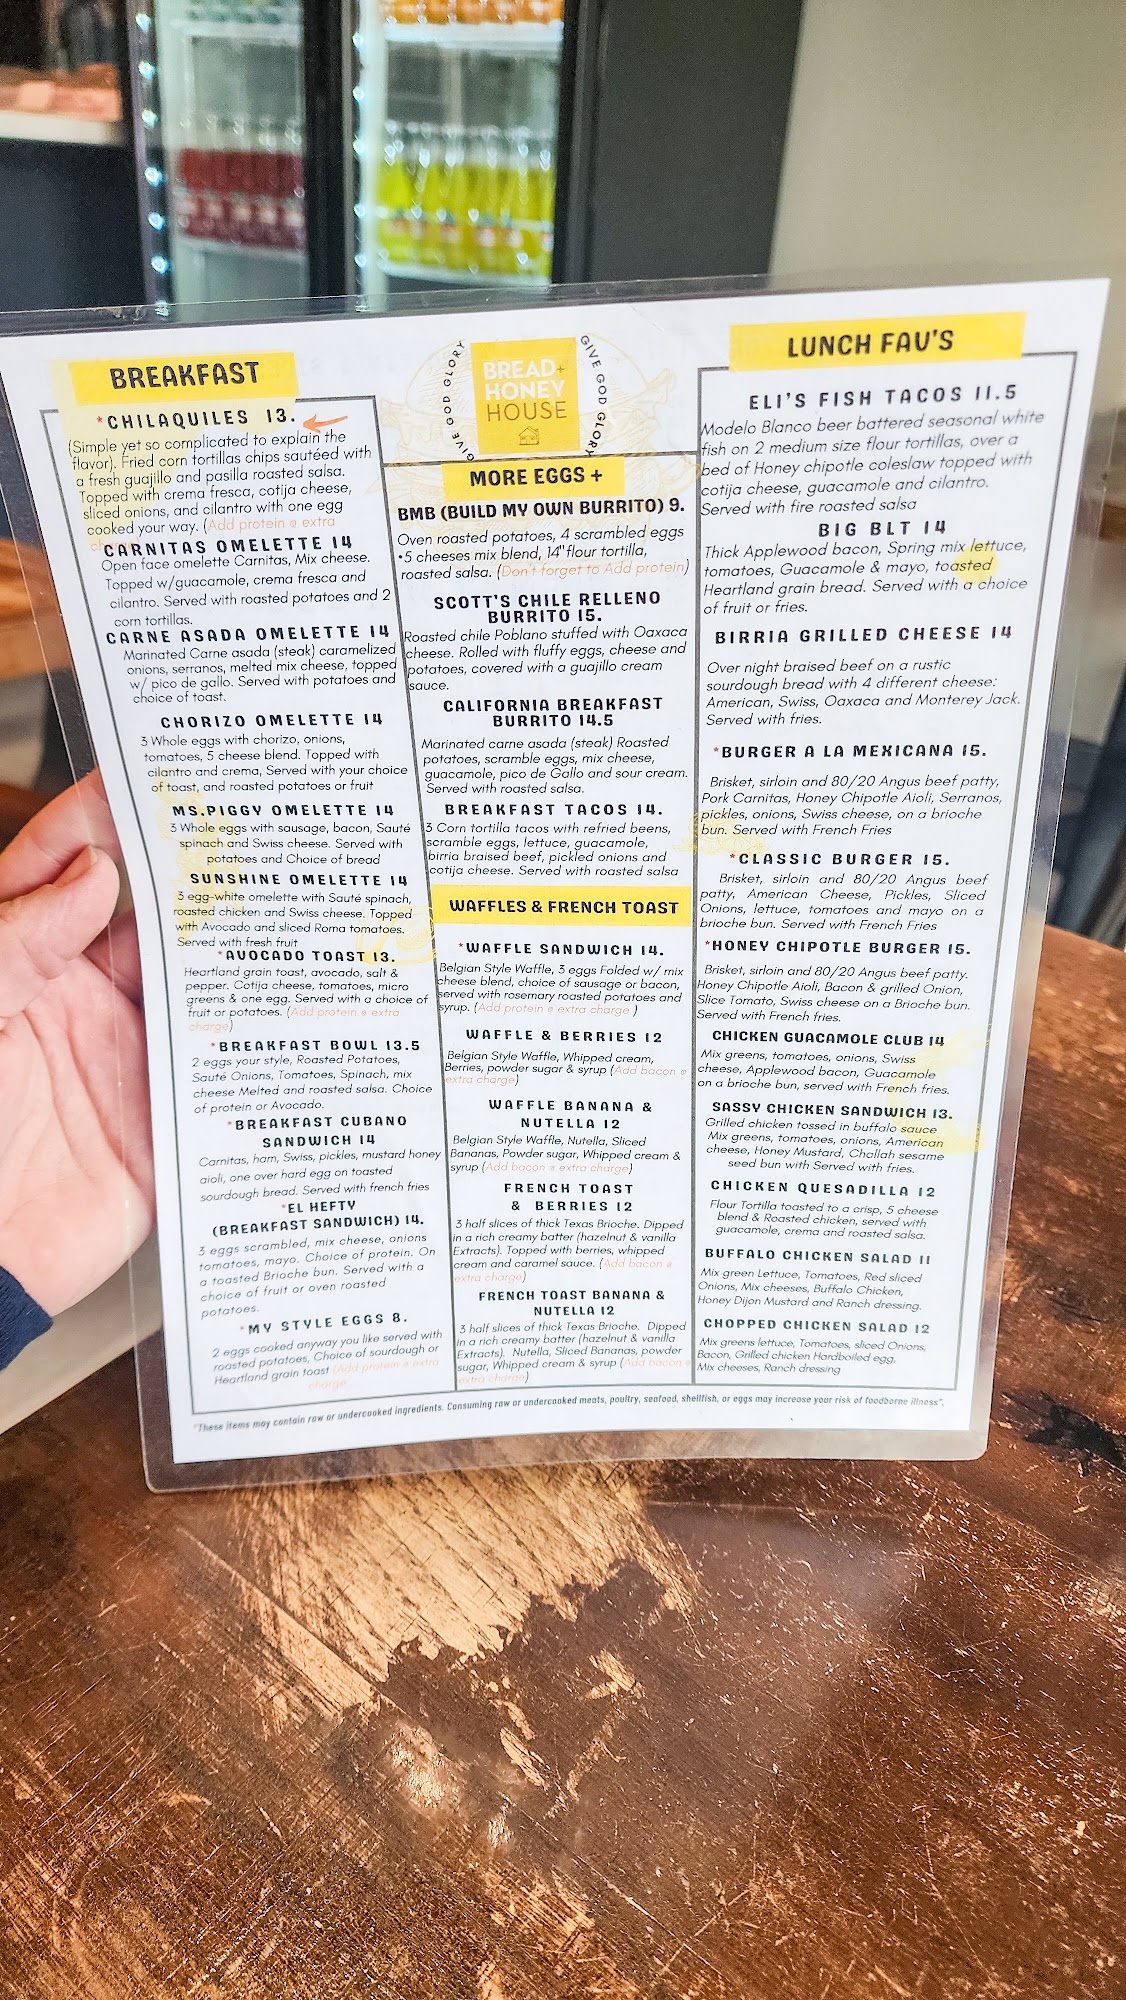 BREAKFAST
*CHILAQUILES 13.
(Simple yet so complicated to explain the
flavor). Fried corn tortillas chips sautéed with
a fresh guajillo and pasilla roasted salsa.
Topped with crema fresca, cotija cheese,
sliced onions, and cilantro with one egg
cooked your way. (Add protein @ extra
CARNITAS OMELETTE 14
Open face omelette Carnitas, Mix cheese.
Topped w/guacamole, crema fresca and
cilantro. Served with roasted potatoes and 2
corn tortillas.
CARNE ASADA OMELETTE 14
Marinated Carne asada (steak) caramelized
onions, serranos, melted mix cheese, topped
w/ pico de gallo. Served with potatoes and
choice of toast.
CHORIZO OMELETTE 14
3 Whole eggs with chorizo, onions,
tomatoes, 5 cheese blend. Topped with
cilantro and crema, Served with your choice
of toast, and roasted potatoes or fruit
MS.PIGGY OMELETTE 14
3 Whole eggs with sausage, bacon, Sauté
spinach and Swiss cheese. Served with
potatoes and Choice of bread
SUNSHINE OMELETTE 14
3 egg-white omelette with Sauté spinach,
roasted chicken and Swiss cheese. Topped
with Avocado and sliced Roma tomatoes.
Served with fresh fruit
*AVOCADO TOAST 13.
Heartland grain toast, avocado, salt &
pepper. Cotija cheese, tomatoes, micro
greens & one egg. Served with a choice of
fruit or potatoes. (Add protein @ extra
charge)
*BREAKFAST BOWL 13.5
2 eggs your style, Roasted Potatoes,
Sauté Onions, Tomatoes, Spinach, mix
cheese Melted and roasted salsa. Choice
of protein or Avocado.
*BREAKFAST CUBANO
SANDWICH 14
Carnitas, ham, Swiss, pickles, mustard honey
aioli, one over hard egg on toasted
sourdough bread. Served with french fries
*EL HEFTY
(BREAKFAST SANDWICH) 14.
3 eggs scrambled, mix cheese, onions
tomatoes, mayo. Choice of protein. On
a toasted Brioche bun. Served with a
choice of fruit or oven roasted
potatoes.
*MY STYLE EGGS 8.
2 eggs cooked anyway you like served with
roasted potatoes, Choice of sourdough or
Heartland grain toast (Add protein @ extra
charge
GIVE GOD GLORY
BREAD+
HONEY
HOUSE
GIVE GOD GLORY
MORE EGGS +
BMB (BUILD MY OWN BURRITO) 9.
Oven roasted potatoes, 4 scrambled eggs
•5 cheeses mix blend, 14"flour tortilla,
roasted salsa. (Don't forget to Add protein)
SCOTT'S CHILE RELLENO
BURRITO 15.
Roasted chile Poblano stuffed with Oaxaca
cheese. Rolled with fluffy eggs, cheese and
potatoes, covered with a guajillo cream
sauce.
CALIFORNIA BREAKFAST
BURRITO 14.5
Marinated carne asada (steak) Roasted
potatoes, scramble eggs, mix cheese,
guacamole, pico de Gallo and sour cream.
Served with roasted salsa.
BREAKFAST TACOS 14.
3 Corn tortilla tacos with refried beens,
scramble eggs, lettuce, guacamole,
birria braised beef, pickled onions and
cotija cheese. Served with roasted salsa
WAFFLES & FRENCH TOAST
*WAFFLE SANDWICH 14.
Belgian Style Waffle, 3 eggs Folded w/ mix
cheese blend, choice of sausage or bacon,
served with rosemary roasted potatoes and
syrup. (Add protein @ extra charge )
WAFFLE & BERRIES 12
Belgian Style Waffle, Whipped cream,
Berries, powder sugar & syrup (Add bacon @
extra charge)
WAFFLE BANANA &
NUTELLA 12
Belgian Style Waffle, Nutella, Sliced
Bananas, Powder sugar, Whipped cream &
syrup (Add bacon @ extra charge)
FRENCH TOAST
& BERRIES 12
3 half slices of thick Texas Brioche. Dipped
in a rich creamy batter (hazelnut & vanilla
Extracts). Topped with berries, whipped
cream and caramel sauce. (Add bacon @
extra charge)
FRENCH TOAST BANANA &
NUTELLA 12
3 half slices of thick Texas Brioche. Dipped
in a rich creamy batter (hazelnut & vanilla
Extracts). Nutella, Sliced Bananas, powder
sugar, Whipped cream & syrup (Add bacon @
extra charge)
LUNCH FAV'S
ELI'S FISH TACOS 11.5
Modelo Blanco beer battered seasonal white
fish on 2 medium size flour tortillas, over a
bed of Honey chipotle coleslaw topped with
cotija cheese, guacamole and cilantro.
Served with fire roasted salsa
BIG BLT 14
Thick Applewood bacon, Spring mix lettuce,
tomatoes, Guacamole & mayo, toasted
Heartland grain bread. Served with a choice
of fruit or fries.
BIRRIA GRILLED CHEESE 14
Over night braised beef on a rustic
sourdough bread with 4 different cheese:
American, Swiss, Oaxaca and Monterey Jack.
Served with fries.
*BURGER A LA MEXICANA 15.
Brisket, sirloin and 80/20 Angus beef patty,
Pork Carnitas, Honey Chipotle Aioli, Serranos,
pickles, onions, Swiss cheese, on a brioche
bun. Served with French Fries
*CLASSIC BURGER 15.
Brisket, sirloin and 80/20 Angus beef
patty, American Cheese, Pickles, Sliced
Onions, lettuce, tomatoes and mayo on a
brioche bun. Served with French Fries
*HONEY CHIPOTLE BURGER 15.
Brisket, sirloin and 80/20 Angus beef patty.
Honey Chipotle Aioli, Bacon & grilled Onion,
Slice Tomato, Swiss cheese on a Brioche bun.
Served with French fries.
CHICKEN GUACAMOLE CLUB 14
Mix greens, tomatoes, onions, Swiss
cheese, Applewood bacon, Guacamole
on a brioche bun, served with French fries.
SASSY CHICKEN SANDWICH 13.
Grilled chicken tossed in buffalo sauce
Mix greens, tomatoes, onions, American
cheese, Honey Mustard, Challah sesame
seed bun with Served with fries.
CHICKEN QUESADILLA 12
Flour Tortilla toasted to a crisp, 5 cheese
blend & Roasted chicken, served with
guacamole, crema and roasted salsa.
BUFFALO CHICKEN SALAD 11
Mix green Lettuce, Tomatoes, Red sliced
Onions, Mix cheeses, Buffalo Chicken,
Honey Dijon Mustard and Ranch dressing.
CHOPPED CHICKEN SALAD 12
Mix greens lettuce, Tomatoes, sliced Onions,
Bacon, Grilled chicken Hardboiled egg,
Mix cheeses, Ranch dressing
*These items may contain raw or undercooked ingredients. Consuming raw or undercooked meats, poultry, seafood, shellfish, or eggs may increase your risk of foodborne illness".